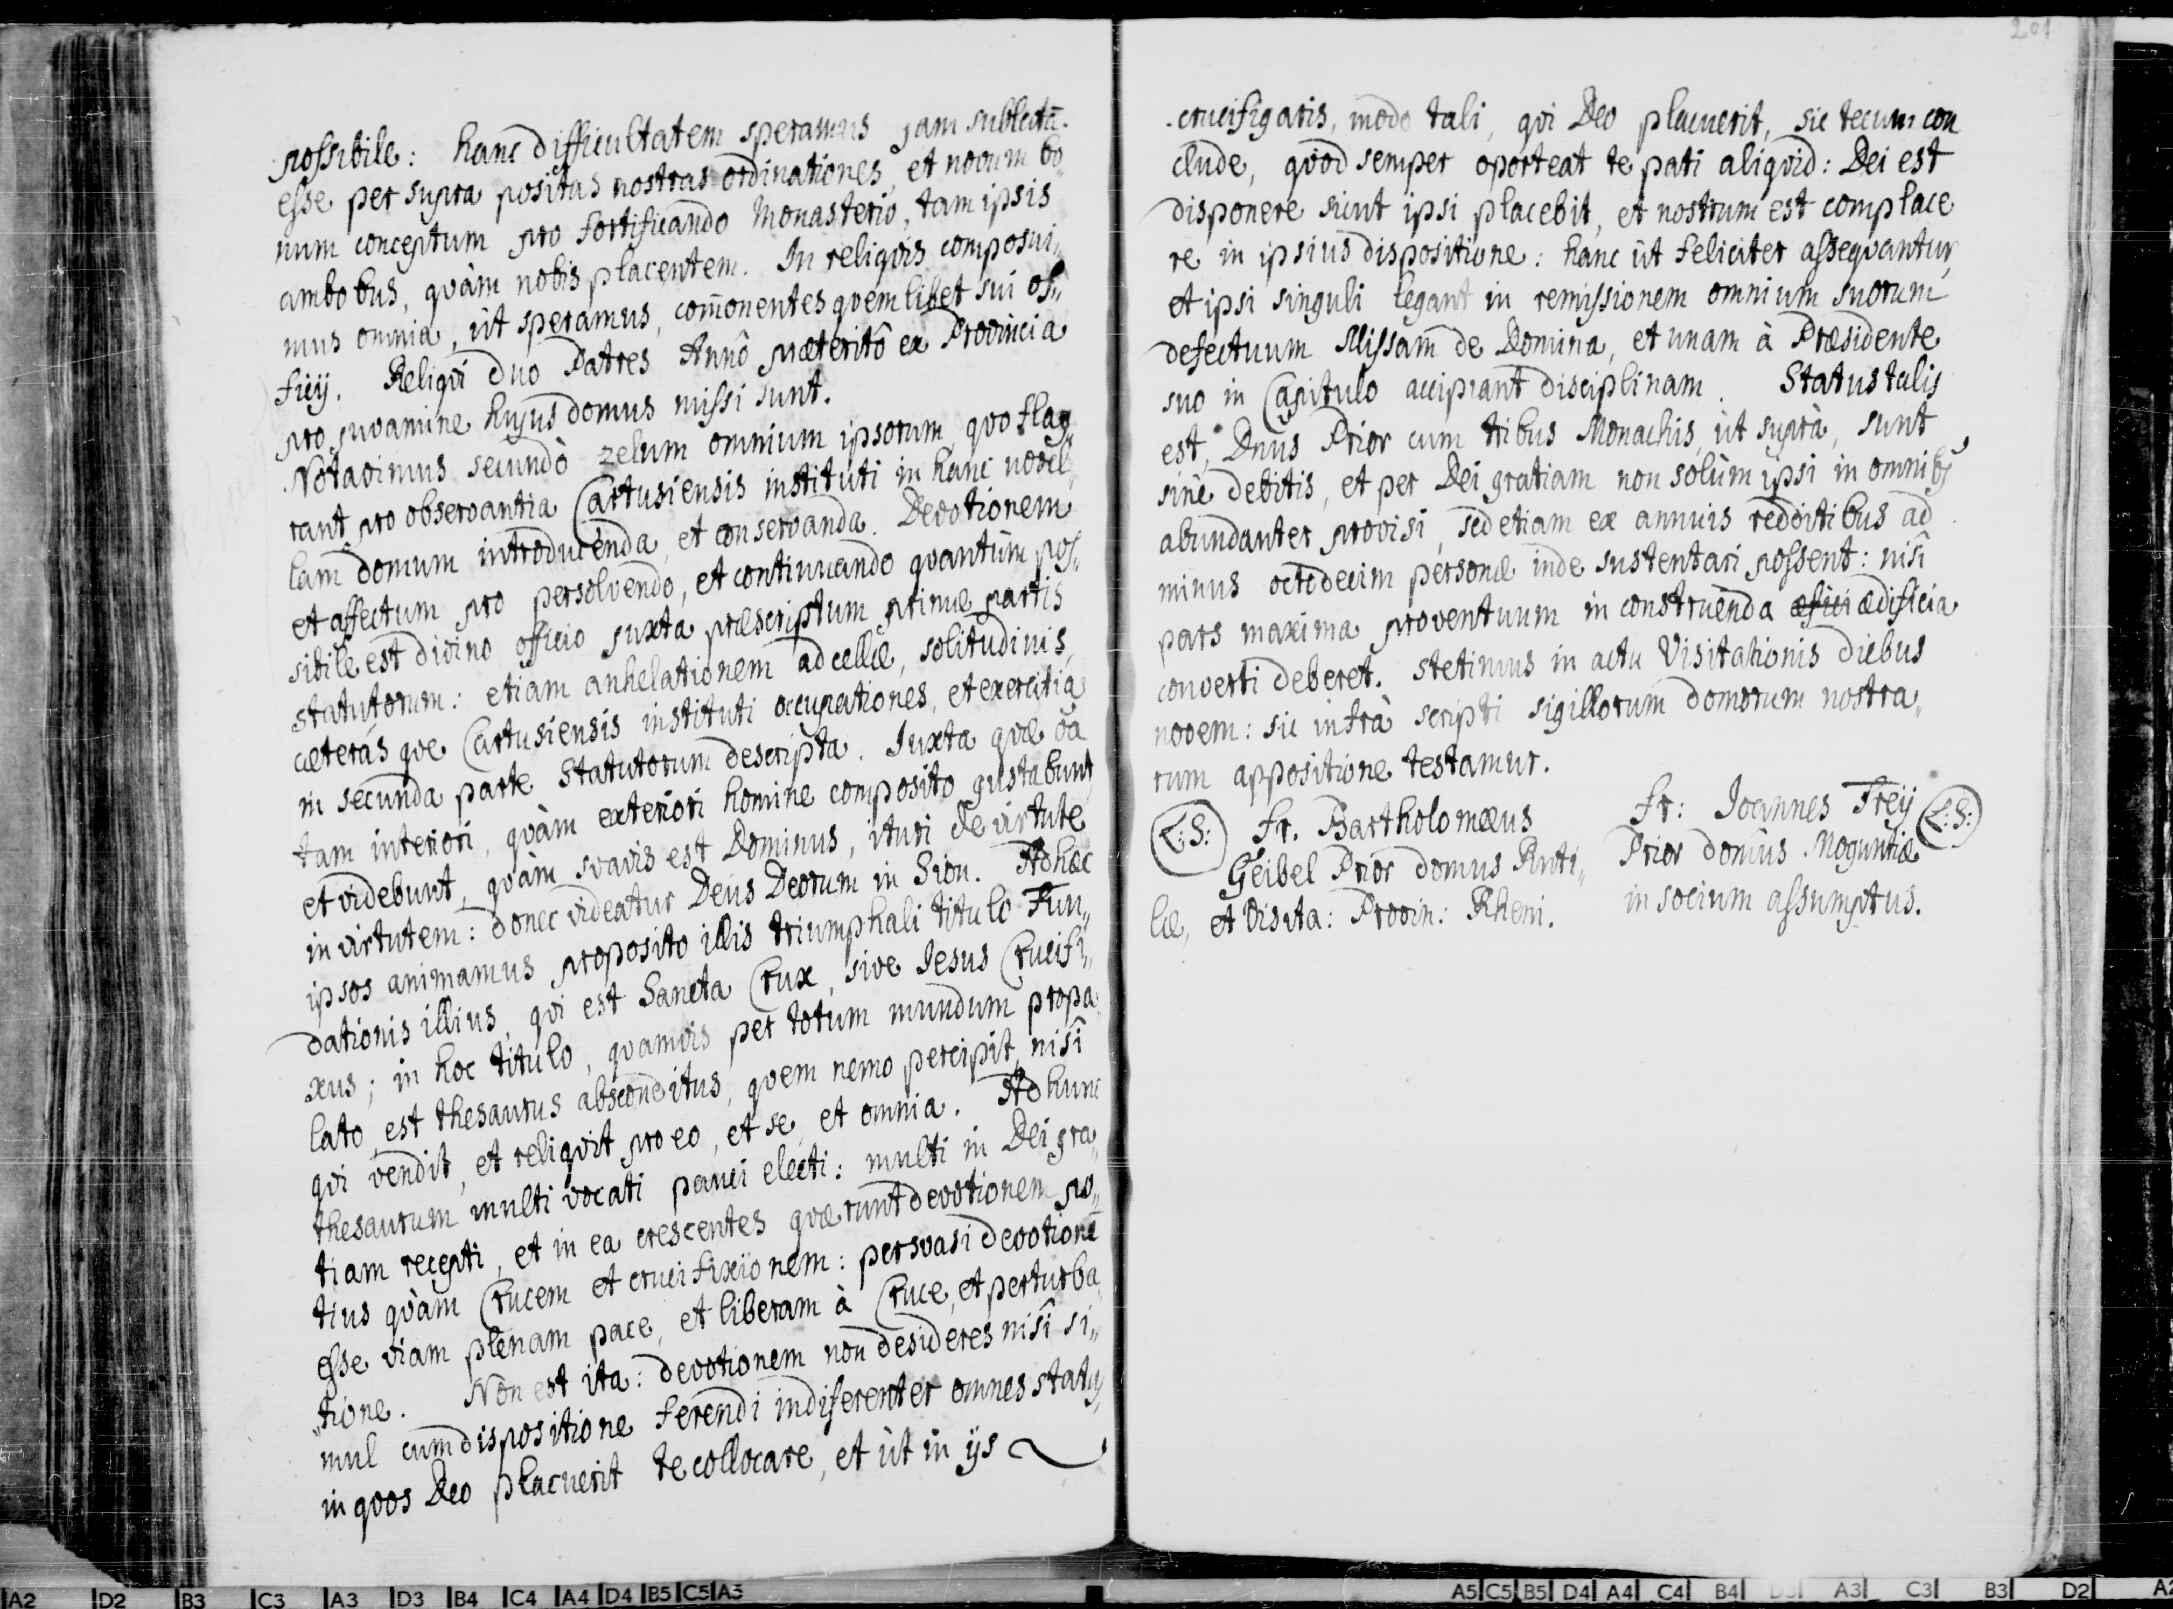 possibile: hanc difficultatem speramus jam sublatā
esse per supra positas nostras ordinationes, et novum bo„
num conceptum pro fortificando Monasterio, tam ipsis
ambobus, quàm nobis placentem. In reliqvis composui„
mus omnia, ùt speramus, com̄onentes qvemlibet sui of„
ficij. Reliqvi duo Patres Annô præteritô ex Provincia
pro juvamine hujus domus missi sunt.
Notavimus secundò zelum omnium ipsorum, quo flag„
rant pro observantia Cartusiensis instituti in hanc novel„
lam domum introducenda, et conservanda. Devotionem
et affectum pro persolvendo, et continuando qvantùm pos„
sibile est divino officio juxta præscriptum primæ partis
statutorum: etiam anhelationem ad cellæ, solitudinis,
cæterásqve Cartusiensis instituti occupationes, et exercitia
in secunda parte Statutorum descripta. Juxta qvæ oā
tam interiori, quàm exteriori homine composito gustabunt
et videbunt, qvàm svavis est Dominus, ituri de virtute
in virtutem: donec videatur Deus Deorum in Sion. Ad hæc
ipsos animamus proposito illis triumphali titulo Fun„
dationis illius, qvi est Sancta Crux, sive Jesus Crucifi„
xus; in hoc titulo, qvamvis per totum mundum propa
lato, est thesaurus absconditus, qvem nemo percipit, nisi
qvi vendit, et reliqvit pro eo, et se, et omnia. Ad hunc
thesaurum multi vocati pauci electi: multi in Dei gra„
tiam recepti, et in ea crescentes qværunt devotionem po„
tius qvàm Crucem et crucifixionem: persvasi devotionē
esse viam plenam pace, et liberam à Cruce, et perturba
„tione. Non est ita: devotionem non desideres nisi si„
mul cum dispositione ferendi indiferenter omnes statu„
in qvos Deo placuerit te collocare, et ùt in ijs
201
crucifigaris, modo tali, qvi Deo placuerit, sic tecum con
clude, qvod semper oporteat te pati aliqvid: Dei est
disponere sicut ipsi placebit, et nostrum est complace
re in ipsius dispositione: hanc ùt feliciter asseqvantur,
et ipsi singuli legant in remissionem omnium suorum
defectuum Missam de Domina, et unam à Præsidente
suo in Capitulo accipiant disciplinam. Status talis
est, Dnus Prior cum tribus Monachis, ùt suprà, sunt
sine debitis, et per Dei gratiam non solùm ipsi in omnibꝫ
abundanter provisi, sed etiam ex annuis redditibus ad
minus octodecim personæ inde sustentari possent: nisi
pars maxima proventuum in construenda æfici ædificia
converti deberet. Stetimus in actu Visitationis diebus
novem: sic infrà scripti sigillorum domorum nostra„
rum appositione testamur.
L:S: Fr. Bartholomæus
Geibel Prior domus Ruti„
læ, et Visita: Provin: Rheni.
Fr: Joannes Freij L:S:
Prior domus Moguntiæ
in socium assumptus.
A2 D2 B3 C3 A3 D3 B4 C4 A4 D4 B5 C5 A5
A5 C5 B5 D4 A4 C4 B4 D3 A3 C3 B3 D2 A2